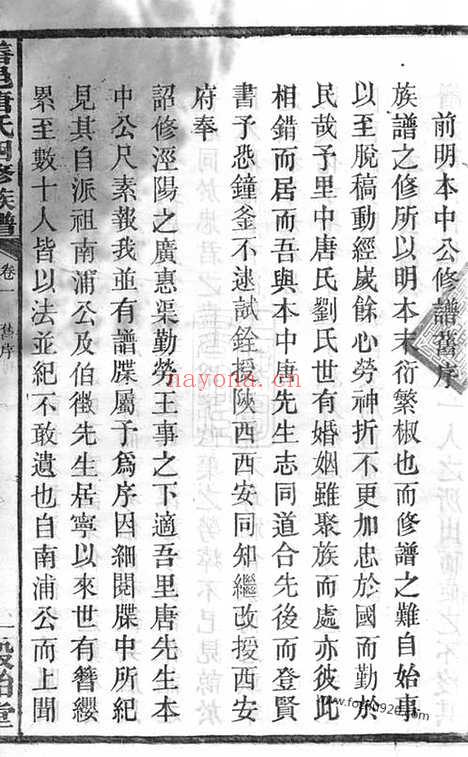 前明本中公修譜舊序
族譜之修所以明本末衍繁椒也而修譜之難自始事
以至脫稿動經歲餘心勞神折不更加忠於國而勤於
民哉予里中唐氏劉氏世有婚姻雖聚族而處亦彼此
相錯而居而吾與本中唐先生志同道合先後而登賢
書予恐鐘釜不逮試銓授陝西西安同知繼改授西安
府奉
詔修涇陽之廣惠渠勤勞王事之下適吾里唐先生本
中公尺素報我並有譜牒屬予爲序因細閱牒中所紀
見其自派祖南浦公及伯徵先生居寧以來世有簪纓
累至數十人皆以法並紀不敢遺也自南浦公而上聞
善邑唐氏四修族譜
卷一
舊序
一
毅詒堂
nayona.cn